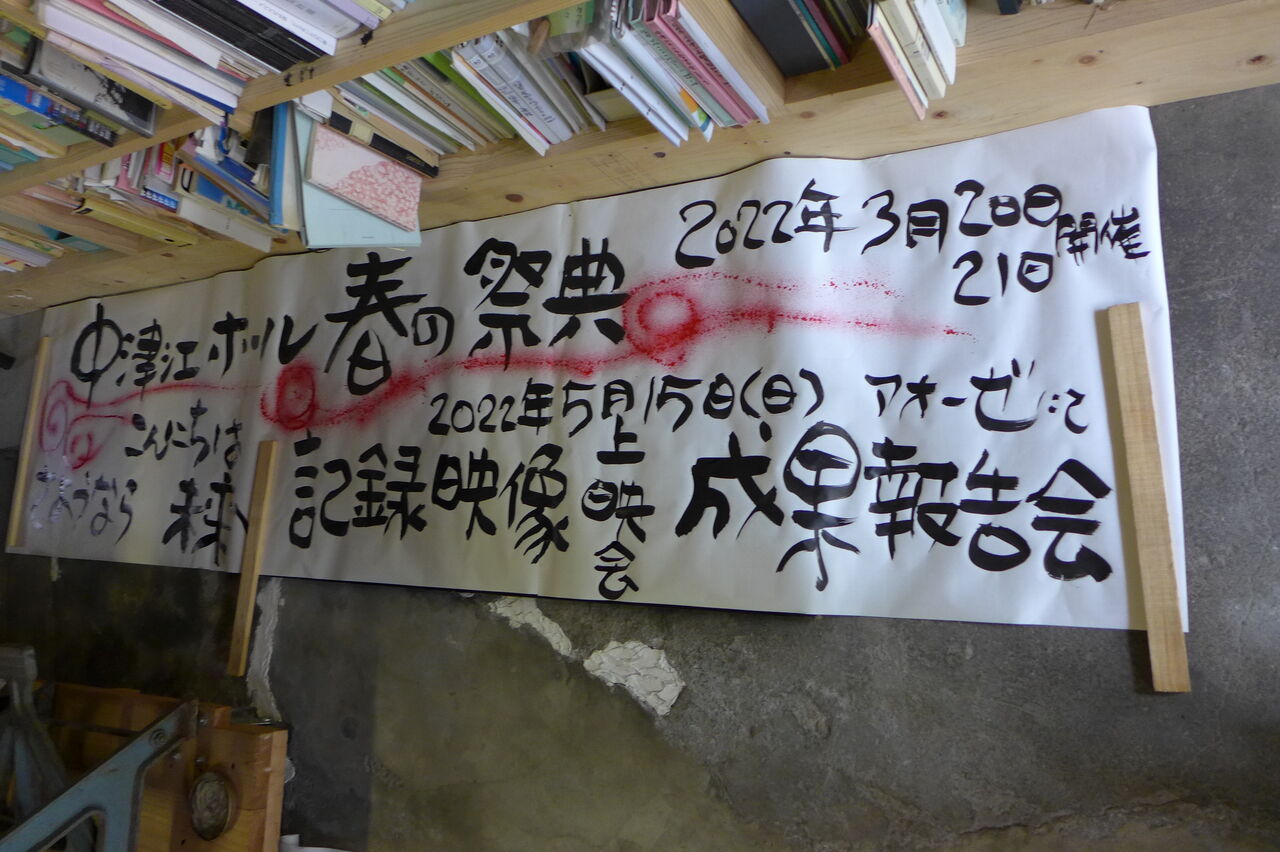 中津江ホール春の祭典
2022年3月20日
21日
開催
こんにちは
さようなら
未来へ
2022年5月15日(日) アオーゼにて
記録映像
上映会
成果報告会